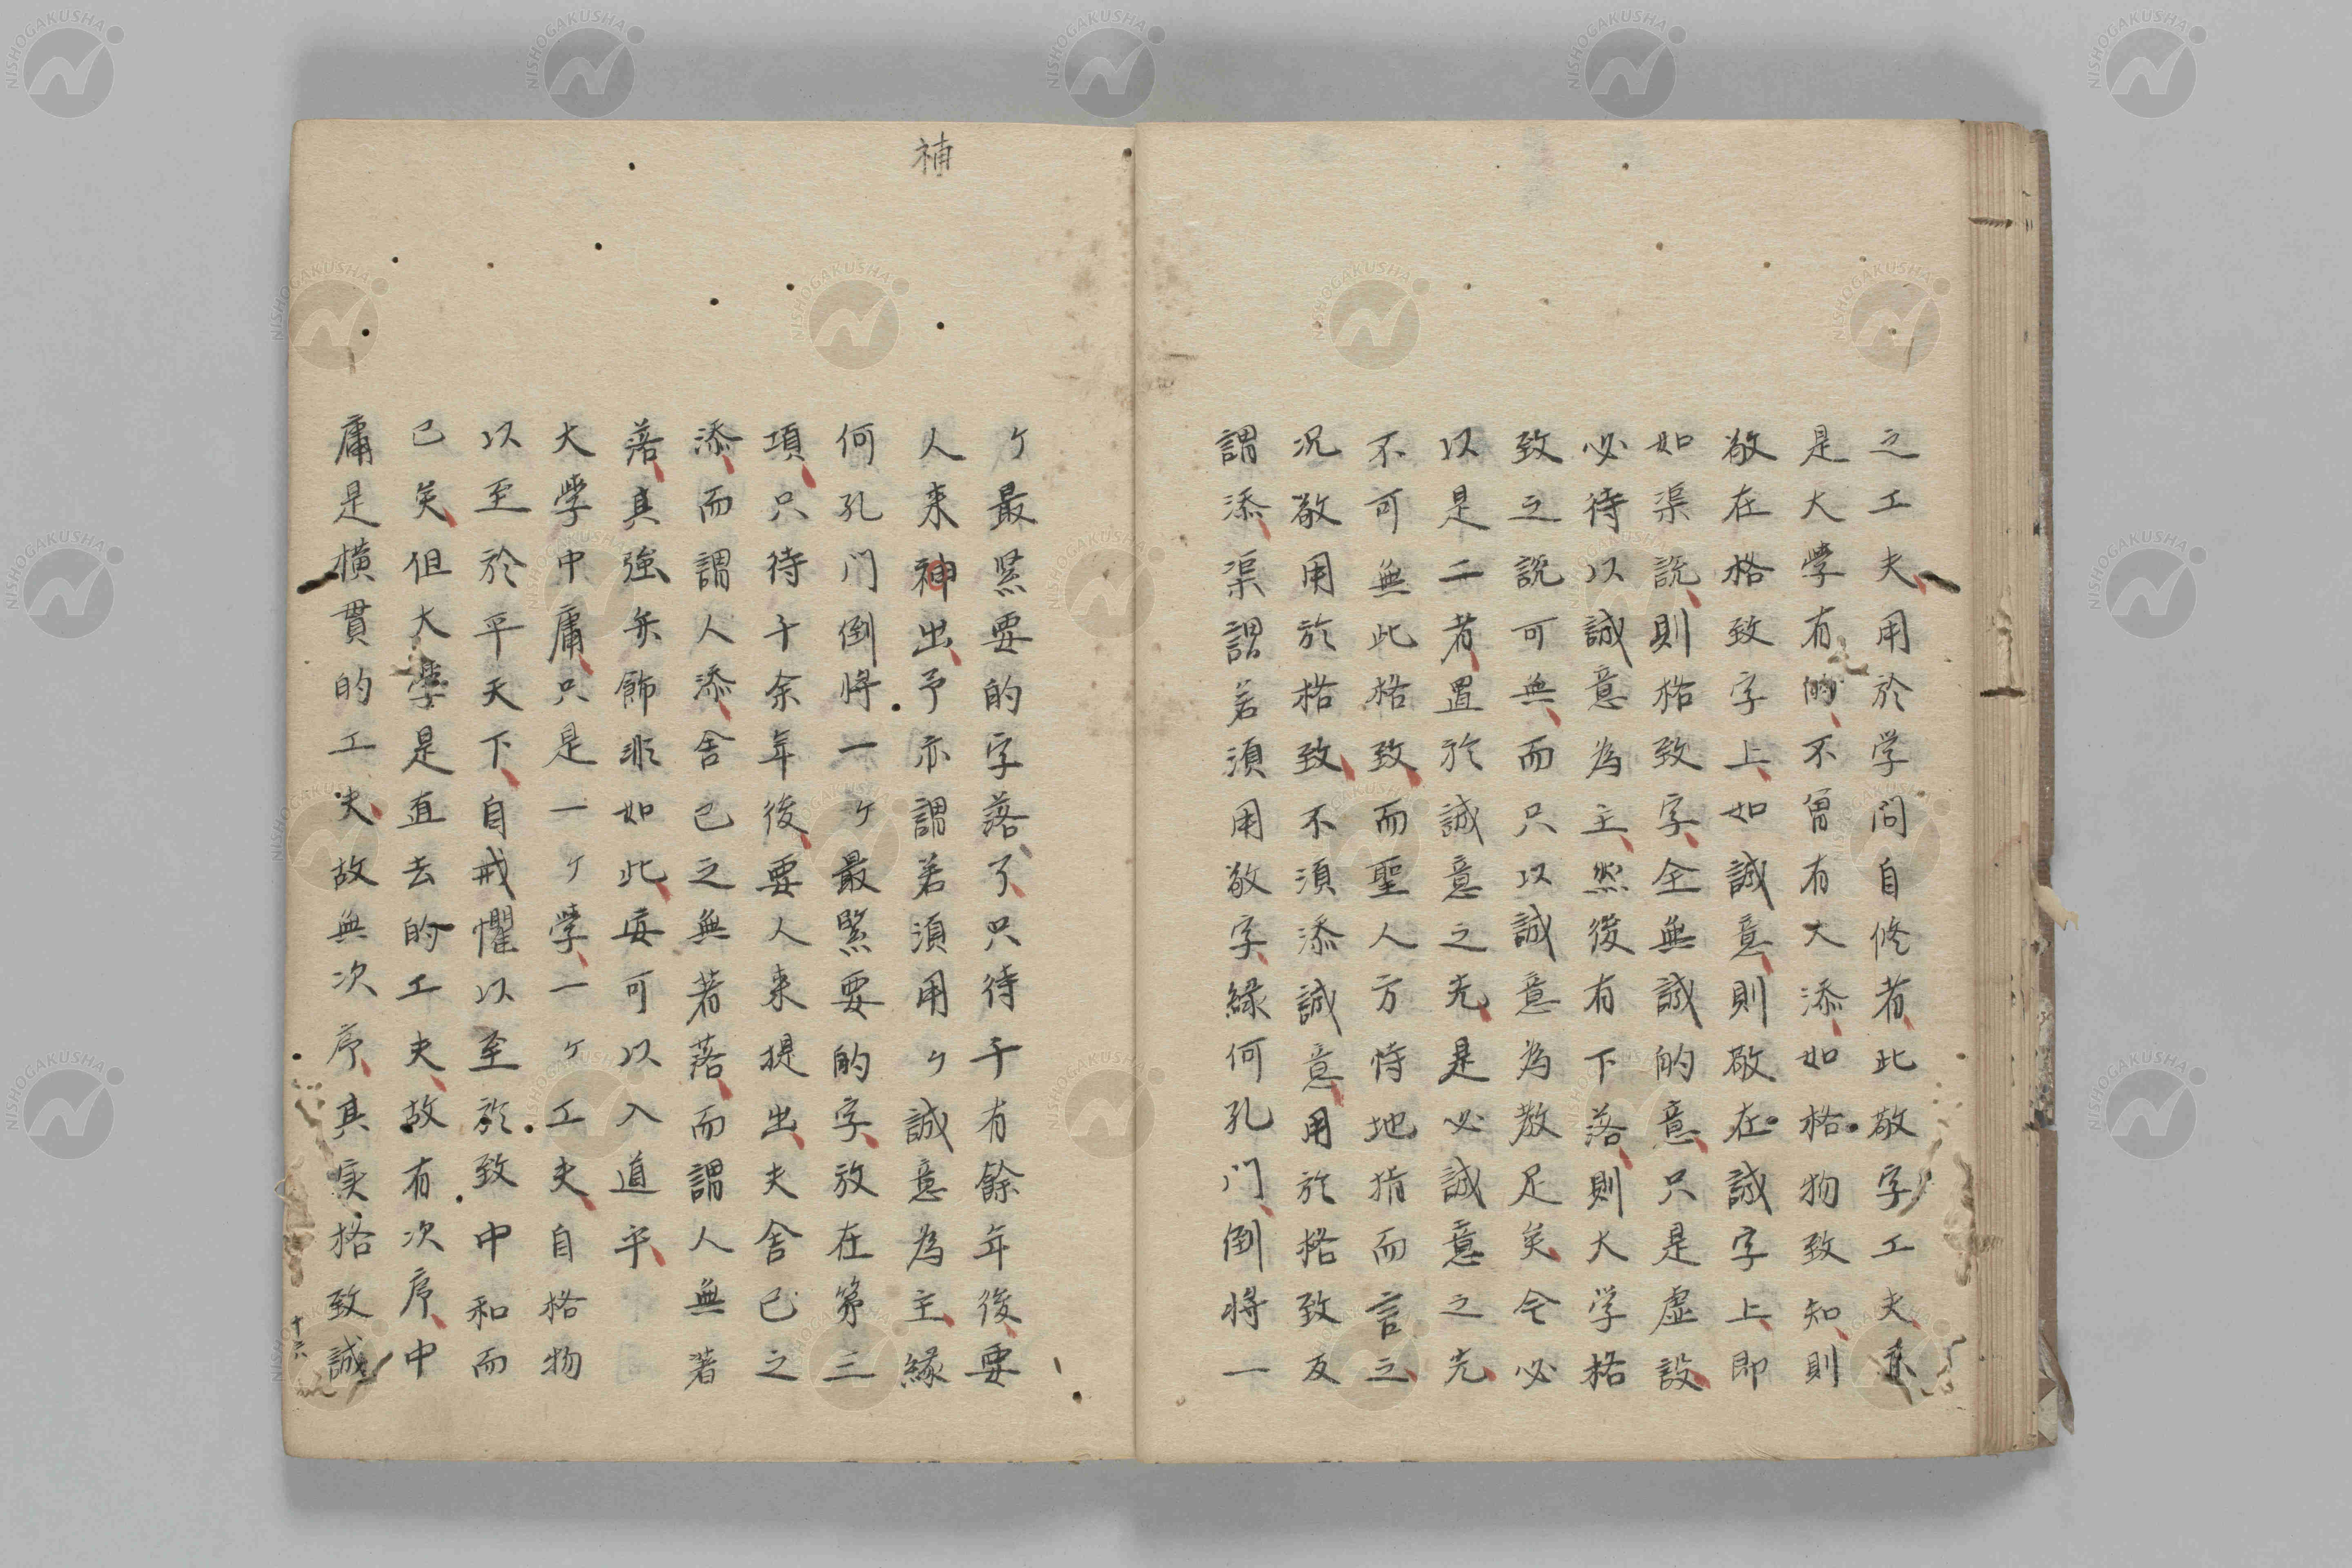 之工夫用於学問自修者此敬字工夫意
是大學有的不曾有大添如格物致知則
敬在格致字上如誠意則敬在誠字上即
如渠說則格致字全無誠的意只是虛設
必待以誠意為主然後有下落則大学格
致之說可無而只以誠意為教足矣今必
以是二者置於誠意之先是必誠意之先
不可無此格致而聖人方恃地指而言之
况敬用於格致不須添誠意用於格致反
謂添渠謂若須用敬字緣何孔門倒將一
ケ最緊要的字落了只待千有餘年後要
人来神出予亦謂若須用ケ誠意為主緣
何孔門倒将一ケ最緊要的字放在第三
項只待千余年後要人来提出夫舍己之
添而謂人添舍己之無著落而謂人無著
落其強矣飾非如此安可以入道乎
大學中庸只是一ケ學一ケ工夫自格物
以至於平天下自戒懼以至於致中和而
已矣但大學是直去的工夫故有次序中
庸是橫貫的工夫故無次序其实格致誠
補
十六
NISHOGAKUSHA